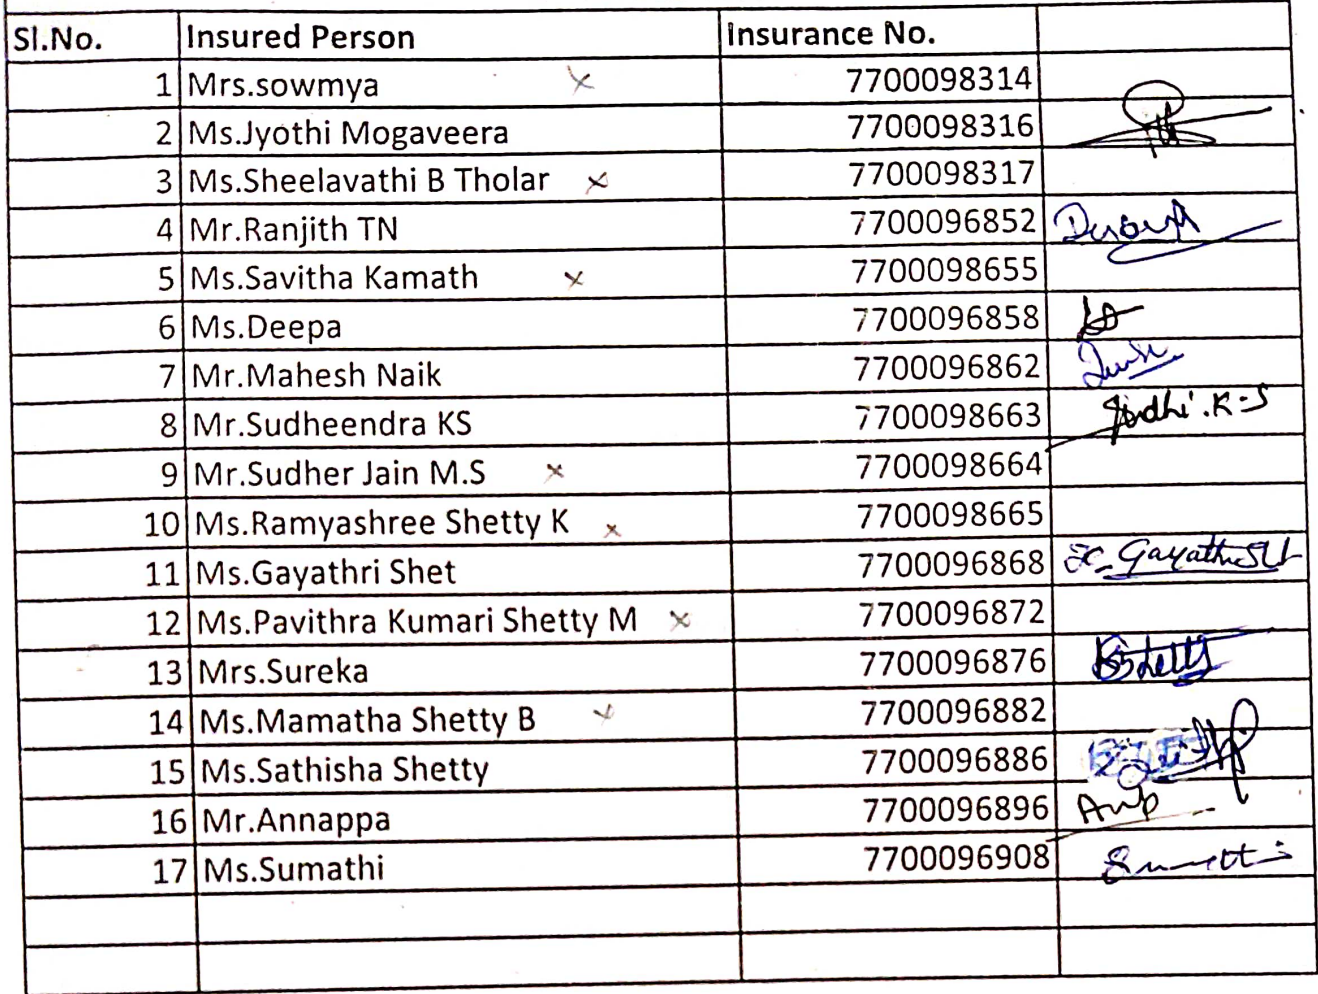 Sl.No. Insured Person Insurance No.
1 Mrs.sowmya x 7700098314
2 Ms.Jyothi Mogaveera 7700098316
3 Ms.Sheelavathi B Tholar x 7700098317
4 Mr.Ranjith TN 7700096852
5 Ms.Savitha Kamath x 7700098655
6 Ms.Deepa 7700096858
7 Mr.Mahesh Naik 7700096862
8 Mr.Sudheendra KS 7700098663 Sudhi.K-S
9 Mr.Sudher Jain M.S x 7700098664
10 Ms.Ramyashree Shetty K x 7700098665
11 Ms.Gayathri Shet 7700096868 Gayathri
12 Ms.Pavithra Kumari Shetty M x 7700096872
13 Mrs.Sureka 7700096876
14 Ms.Mamatha Shetty B x 7700096882
15 Ms.Sathisha Shetty 7700096886
16 Mr.Annappa 7700096896
17 Ms.Sumathi 7700096908